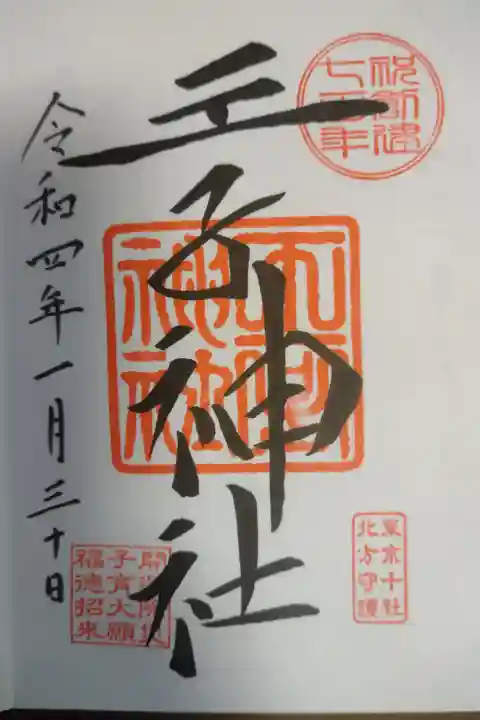 祝創建
七百年
王子神社
王子
神社
令和四年一月三十日
東京十社
北方守護
子育大願
福徳招来